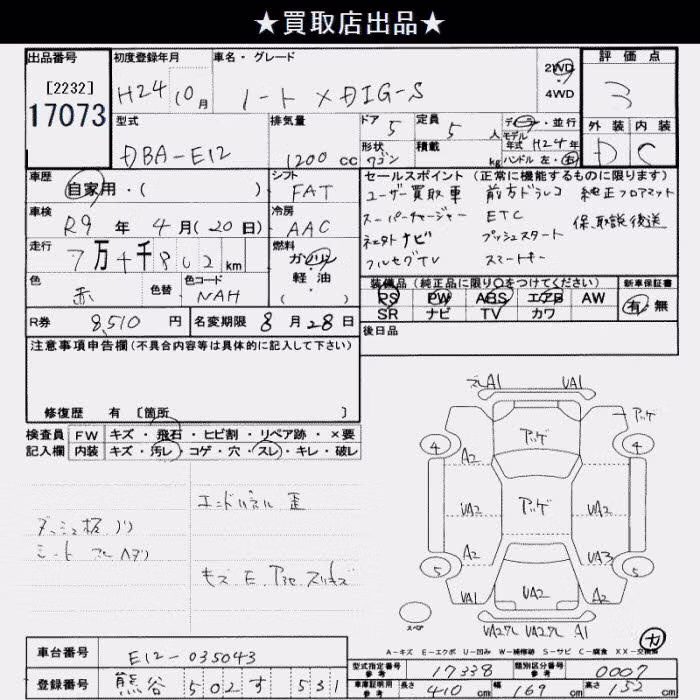 ★買取店出品★
出品番号 初度登録年月 車名・グレード 2WD・4WD 評価点
[2232]
17073
H24 10月 ノート X DIG-S 3
型式 排気量 ドア 定員 ディーラー・並行 外装 内装
DBA-E12 1200cc 5 5人 モデル年式 H24年 D C
形状 ワゴン 積載 kg ハンドル 左・右
車歴 シフト セールスポイント (正常に機能するものに限ります)
自家用・( ) FAT
ユーザー買取車 前方ドラレコ 純正フロアマット
車検 冷房
R9年 4月(20日) AAC
スーパーチャージャー ETC 保、取説後送
走行 燃料
7万4千802km ガソリン
軽・油
・( )
ナビ プッシュスタート
フルセグTV スマートキー
色 色替 色コード
赤 NAH
装備品 (純正品に限り○をつけてください) 新車保証書
PS PW ABS エアB AW 有・無
SR ナビ TV カワ
R券 8,510円 名変期限 8月28日
後日品
注意事項申告欄 (不具合内容等は具体的に記入して下さい)
修復歴 有 〔箇所 〕
検査員 FW キズ・飛石・ヒビ割・リペア跡・×要
記入欄 内装 キズ・汚レ・コゲ・穴・スレ・キレ・破レ
エンドパネル歪
シート
キズ E
A1 UA1
アッゲ
アッゲ
4 4
A2
UA2 アッゲ UA2
A2 UA3
5 5
UA2 A2
スペア
UA27C UA27C A1
A-キズ E-エクボ U-凹み W-補修跡 S-サビ C-腐食 XX-交換済
車台番号 E12-035043
登録番号 熊谷 502 す 531
型式指定番号 参考 17338 類別区分番号 参考 0007
車庫証明用 参考 長さ 410cm 幅 169cm 高さ 152cm